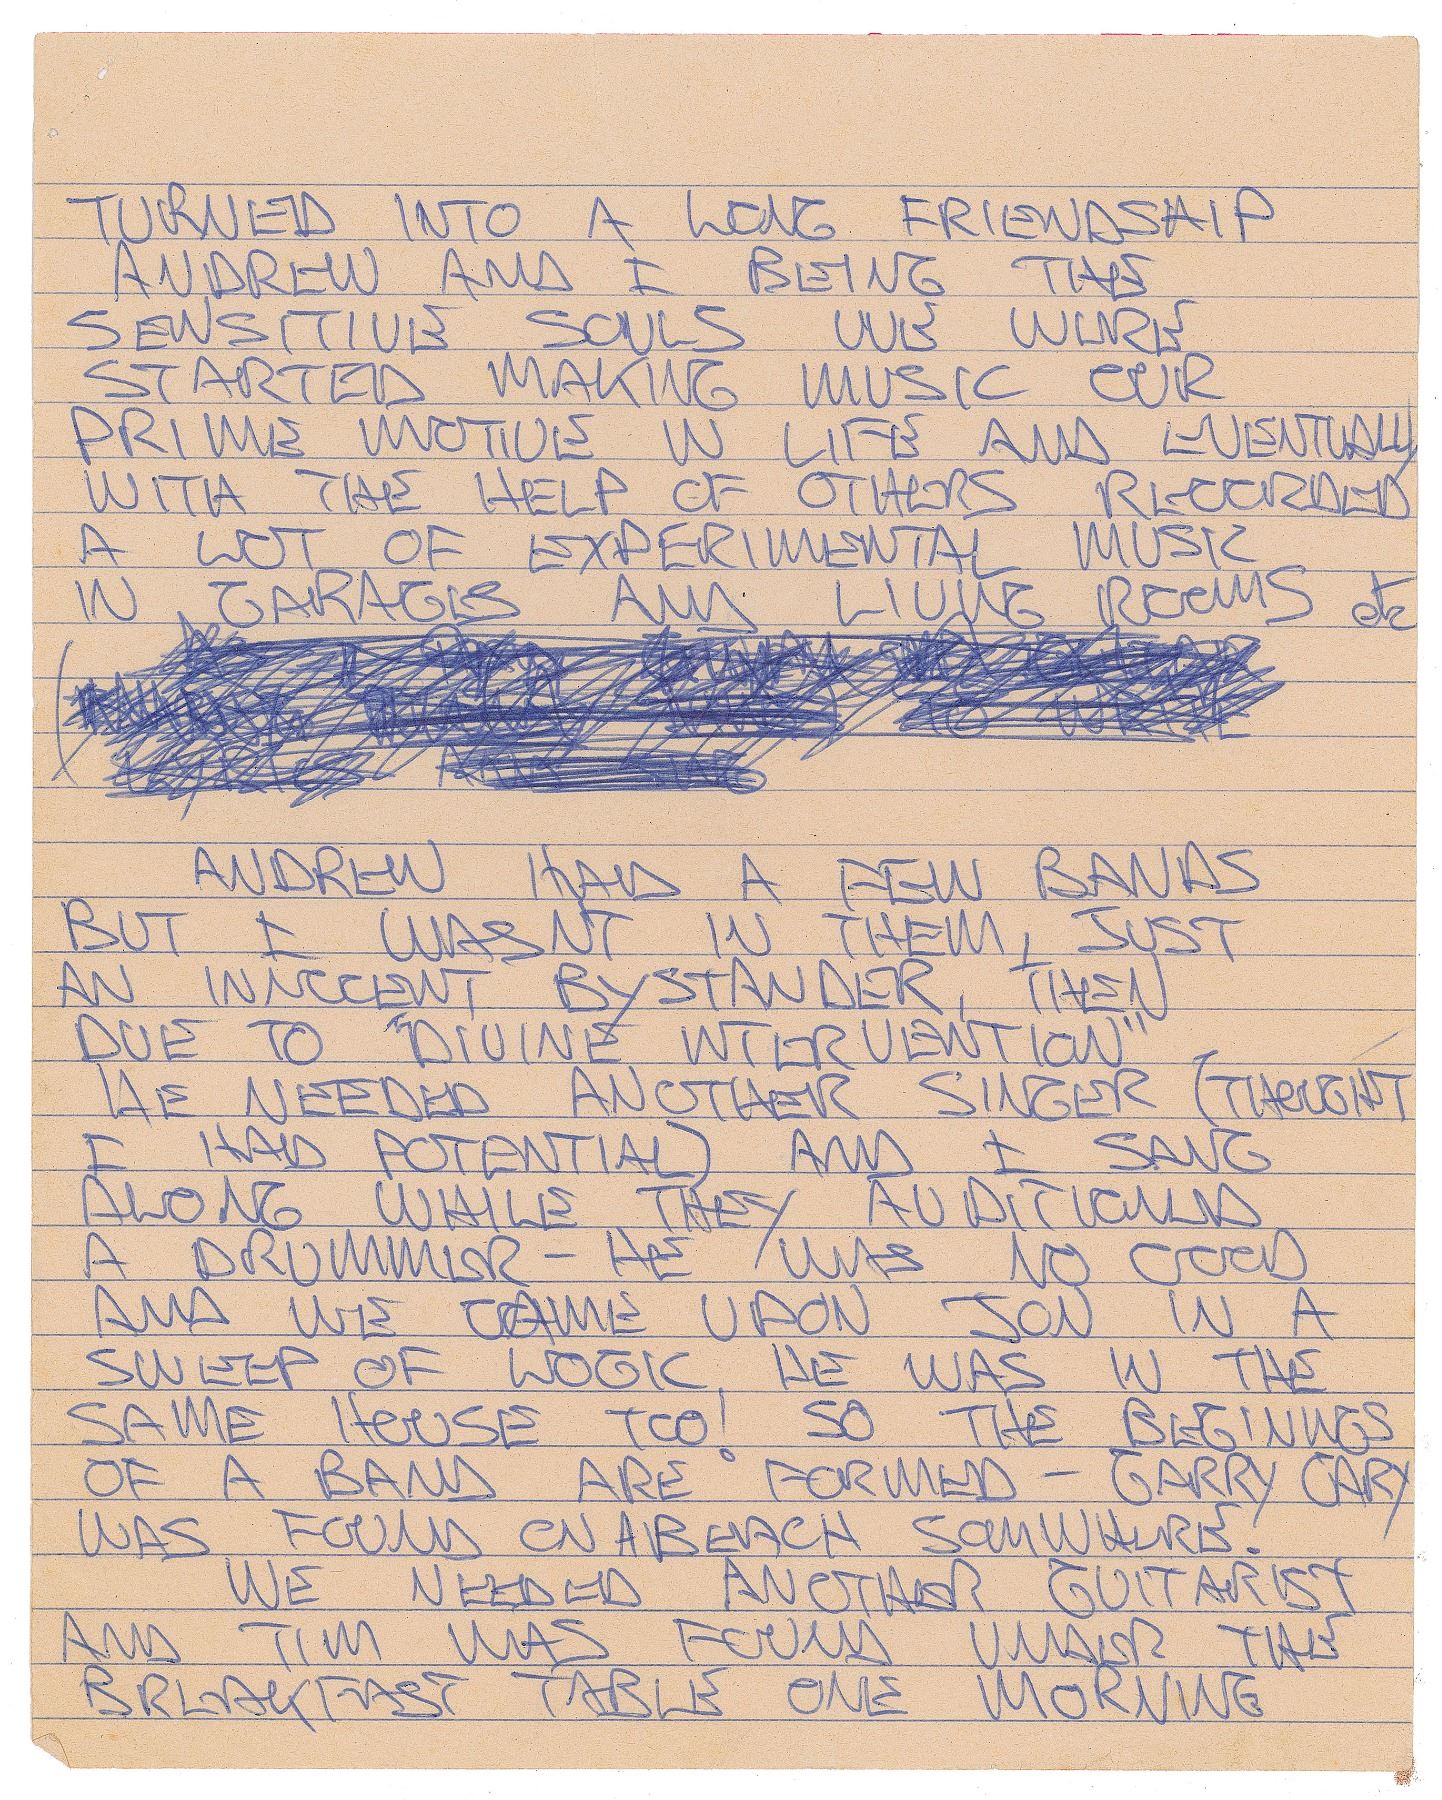 TURNED INTO A LONG FRIENDSHIP
ANDREW AND I BEING THE
SENSITIVE SOULS WE WERE
STARTED MAKING MUSIC OUR
PRIME MOTIVE IN LIFE AND EVENTUALLY
WITH THE HELP OF OTHERS RECORDED
A LOT OF EXPERIMENTAL MUSIC
IN GARAGES AND LIVING ROOMS etc
TO WRITE
ANDREW HAD A FEW BANDS
BUT I WASNT IN THEM, JUST
AN INNOCENT BYSTANDER, THEN
DUE TO "DIVINE INTERVENTION"
HE NEEDED ANOTHER SINGER (THOUGHT
I HAD POTENTIAL) AND I SANG
ALONG WHILE THEY AUDITIONED
A DRUMMER - HE WAS NO GOOD
AND WE CAME UPON JON IN A
SWEEP OF LOGIC, HE WAS IN THE
SAME HOUSE TOO! SO THE BEGININGS
OF A BAND ARE FORMED - GARRY CARY
WAS FOUND ON A BEACH SOMWHERE.
WE NEEDED ANOTHER GUITARIST
AND TIM WAS FOUND UNDER THE
BREAKFAST TABLE ONE MORNING